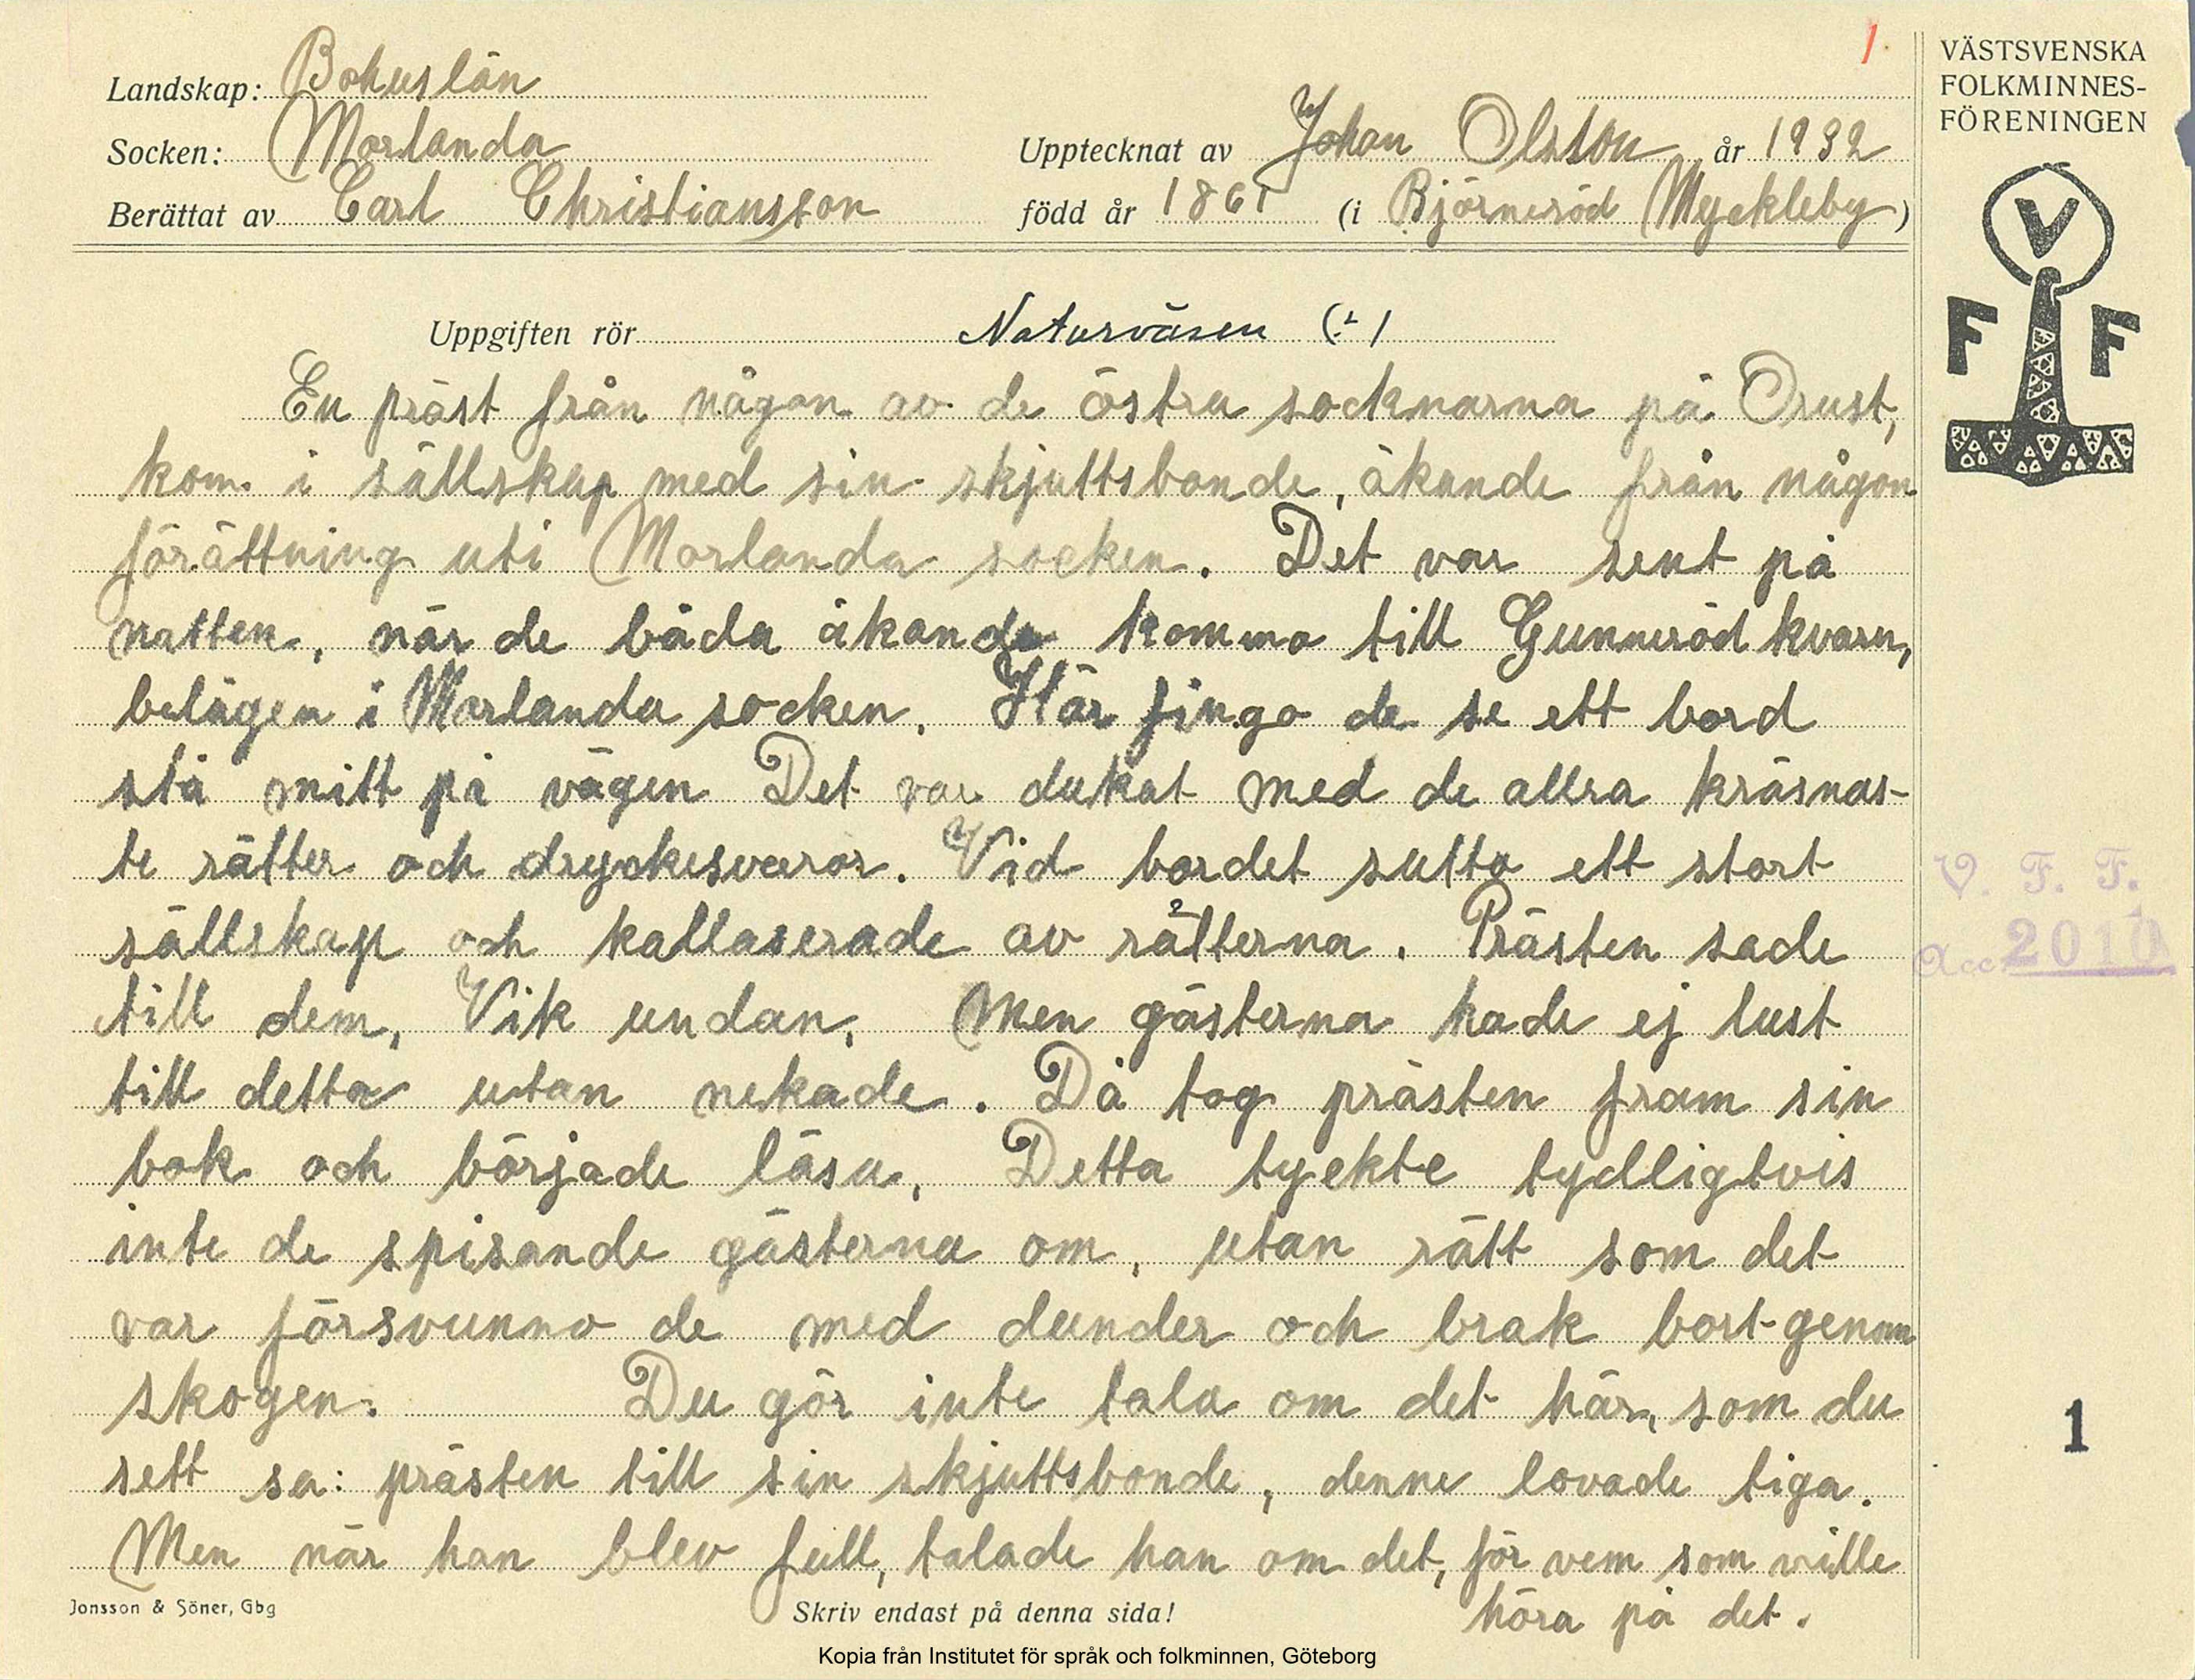 1.
VÄSTSVENSKA
FOLKMINNES-
FÖRENINGEN
V
F F
Landskap: Bohuslän
Socken: Morlanda
Upptecknat av Johan Olsson år 1932
Berättat av Carl Christiansson
född år 1861 (i Björneröd Myckleby)
Uppgiften rör Naturväsen (?)
En präst från någon av de östra socknarna på Orust,
kom i sällskap med sin skjuttsbonde, åkande från någon
förättning uti Morlanda socken. Det var sent på
natten, när de båda åkande kommo till Gunneröd kvarn,
belägen i Morlanda socken. Här fingo de se ett bord
stå mitt på vägen Det var dukat med de allra kräsnas-
te rätter och dryckesvaror. Vid bordet sutto ett stort
sällskap och kallaserade av rätterna. Prästen sade
till dem, Vik undan, Men gästerna hade ej lust
till detta utan nekade. Då tog prästen fram sin
bok och började läsa. Detta tyckte tydligtvis
inte de spisande gästerna om, utan rätt som det
var försvunno de med dunder och brak bort genom
skogen. Du gör inte tala om det här, som du
sett sa: prästen till sin skjuttsbonde, denne lovade tiga.
Men när han blev full, talade han om det, för vem som ville
höra på det.
V. F. F.
Acc. 2010
1
Jonsson & Söner, Gbg
Skriv endast på denna sida!
Kopia från Institutet för språk och folkminnen, Göteborg